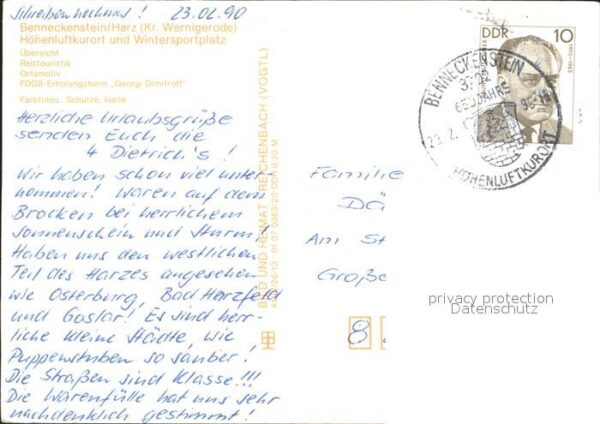 Schreiben nochmal! 23.02.90
Benneckenstein/Harz (Kr. Wernigerode)
Höhenluftkurort und Wintersportplatz
Übersicht
Reittouristik
Ortsmotiv
FDGB-Erholungsheim „Georgi Dimitroff"
Farbfotos: Schütze, Halle
Herzliche Urlaubsgrüße
senden Euch die
4 Dietrich's!
Wir haben schon viel unter-
nommen! Waren auf dem
Brocken bei herrlichem
Sonnenschein und Sturm!
Haben uns den westlichen
Teil des Harzes angesehen
wie Osterburg, Bad Harzfeld
und Goslar! Es sind herr-
liche kleine Städte, wie
Puppenstuben so sauber!
Die Straßen sind Klasse!!!
Die Warenfülle hat uns sehr
nachdenklich gestimmt!
BILD UND HEIMAT REICHENBACH (VOGTL)
01 07 0363/26
DDR 10
BENNECKENSTEIN
HÖHENLUFTKURORT
Familie
Dä
Am St
Große
8
privacy protection
Datenschutz